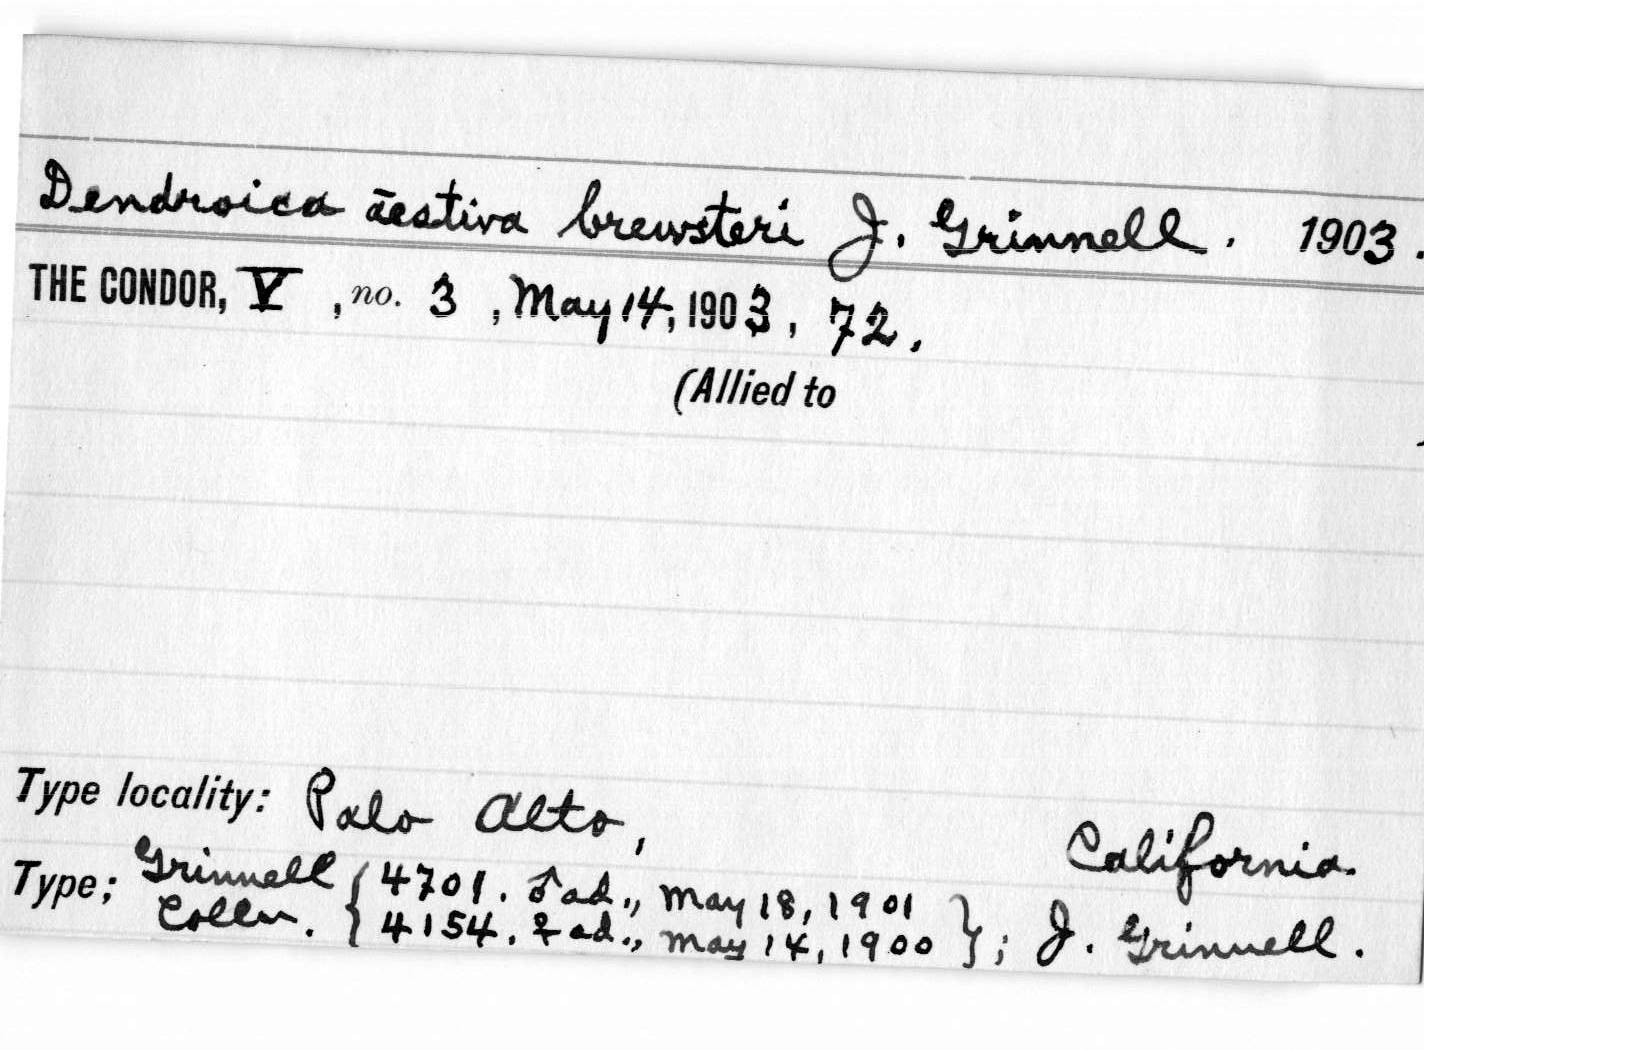 Dendroica āestiva brewsteri J. Grinnell. 1903.
THE CONDOR, V, no. 3, May 14, 1903, 72.
(Allied to
Type locality: Palo Alto, California.
Type; Grinnell Colln. { 4701. ♂ ad., May 18, 1901
4154. ♀ ad., May 14, 1900 }; J. Grinnell.